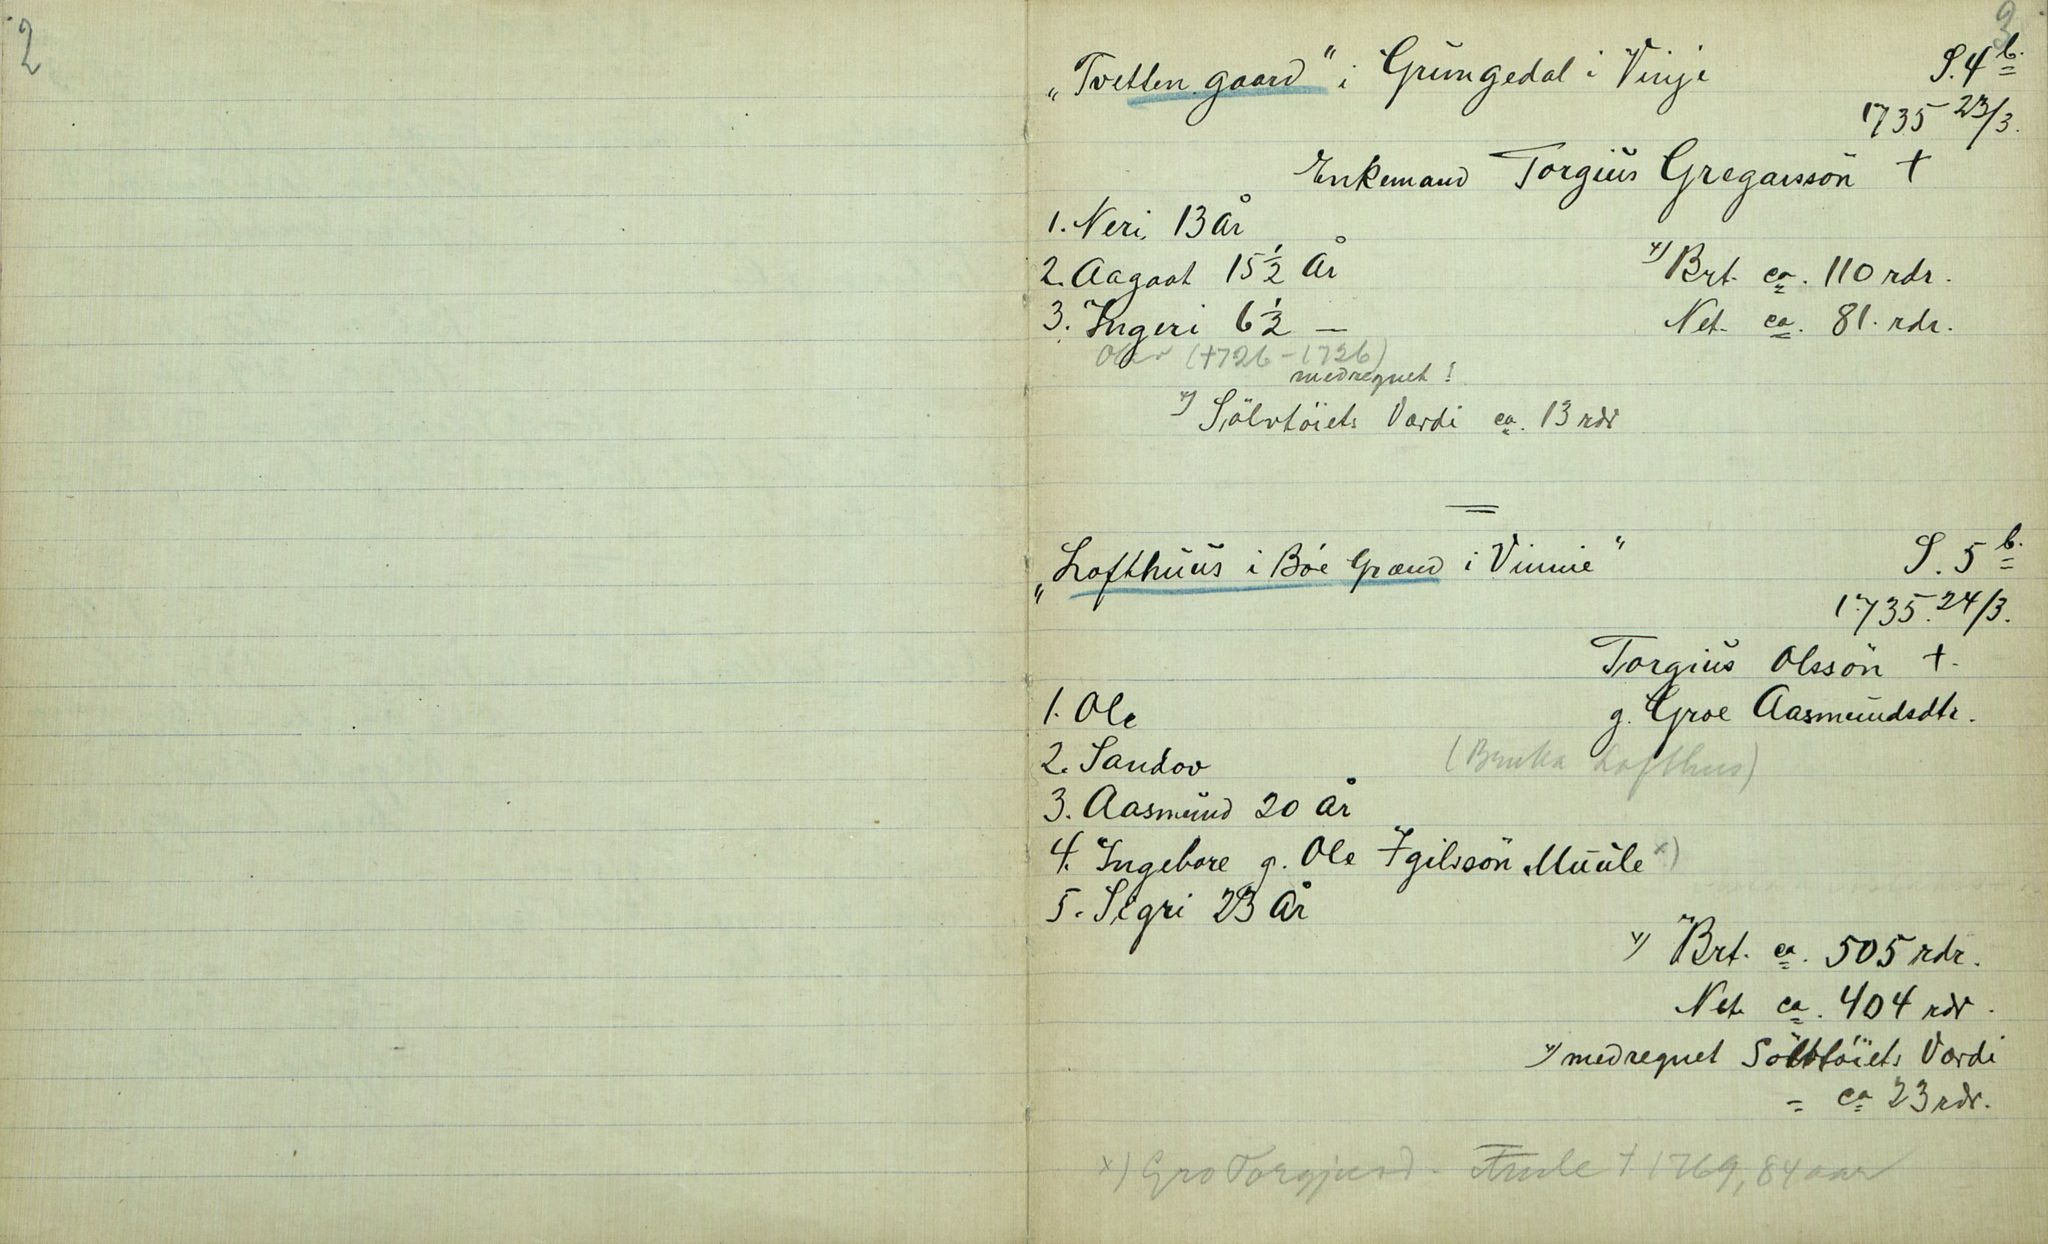 2
3
"Tvetten gaard" i Grungedal i Vinje S. 4 b.
1735 23/3.
Enkemand Torgiŭs Gregarssön †
1. Neri, 13 År
2. Aagaat 15 1/2 År x) Brt. ca. 110 rdr.
3. Ingeri 6 1/2 — Net. ca. 81. rdr.
(1726 - 1726)
medregnet!
x) Sölvtöiets Værdi ca. 13 rdr
"Lofthŭŭs i Böe Grænd i Vinnie" S. 5 b.
1735. 24/3.
Torgiŭs Olssön †.
1. Ole g. Groe Aasmŭndsdtr.
2. Sandov (Bruka Lofthus)
3. Aasmŭnd 20 År
4. Ingebore g. Ole Igilssön Mŭŭle x)
5. Sigri 23 År
x) Brt. ca. 505 rdr.
Net. ca. 404 rdr.
x) medregnet Sölvtöiets Værdi
= ca 23 rdr.
x) Gro Torgjusd. Mule † 1769, 84 aar